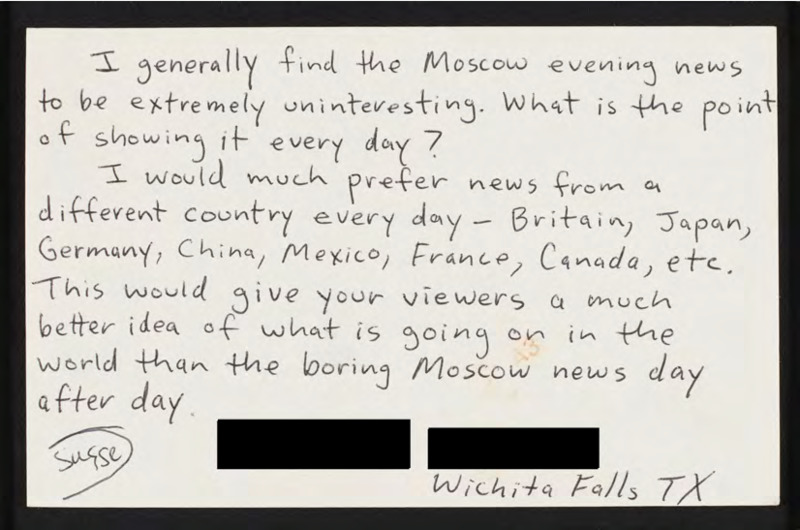 I generally find the Moscow evening news
to be extremely uninteresting. What is the point
of showing it every day?
I would much prefer news from a
different country every day – Britain, Japan,
Germany, China, Mexico, France, Canada, etc.
This would give your viewers a much
better idea of what is going on in the
world than the boring Moscow news day
after day.
Wichita Falls TX